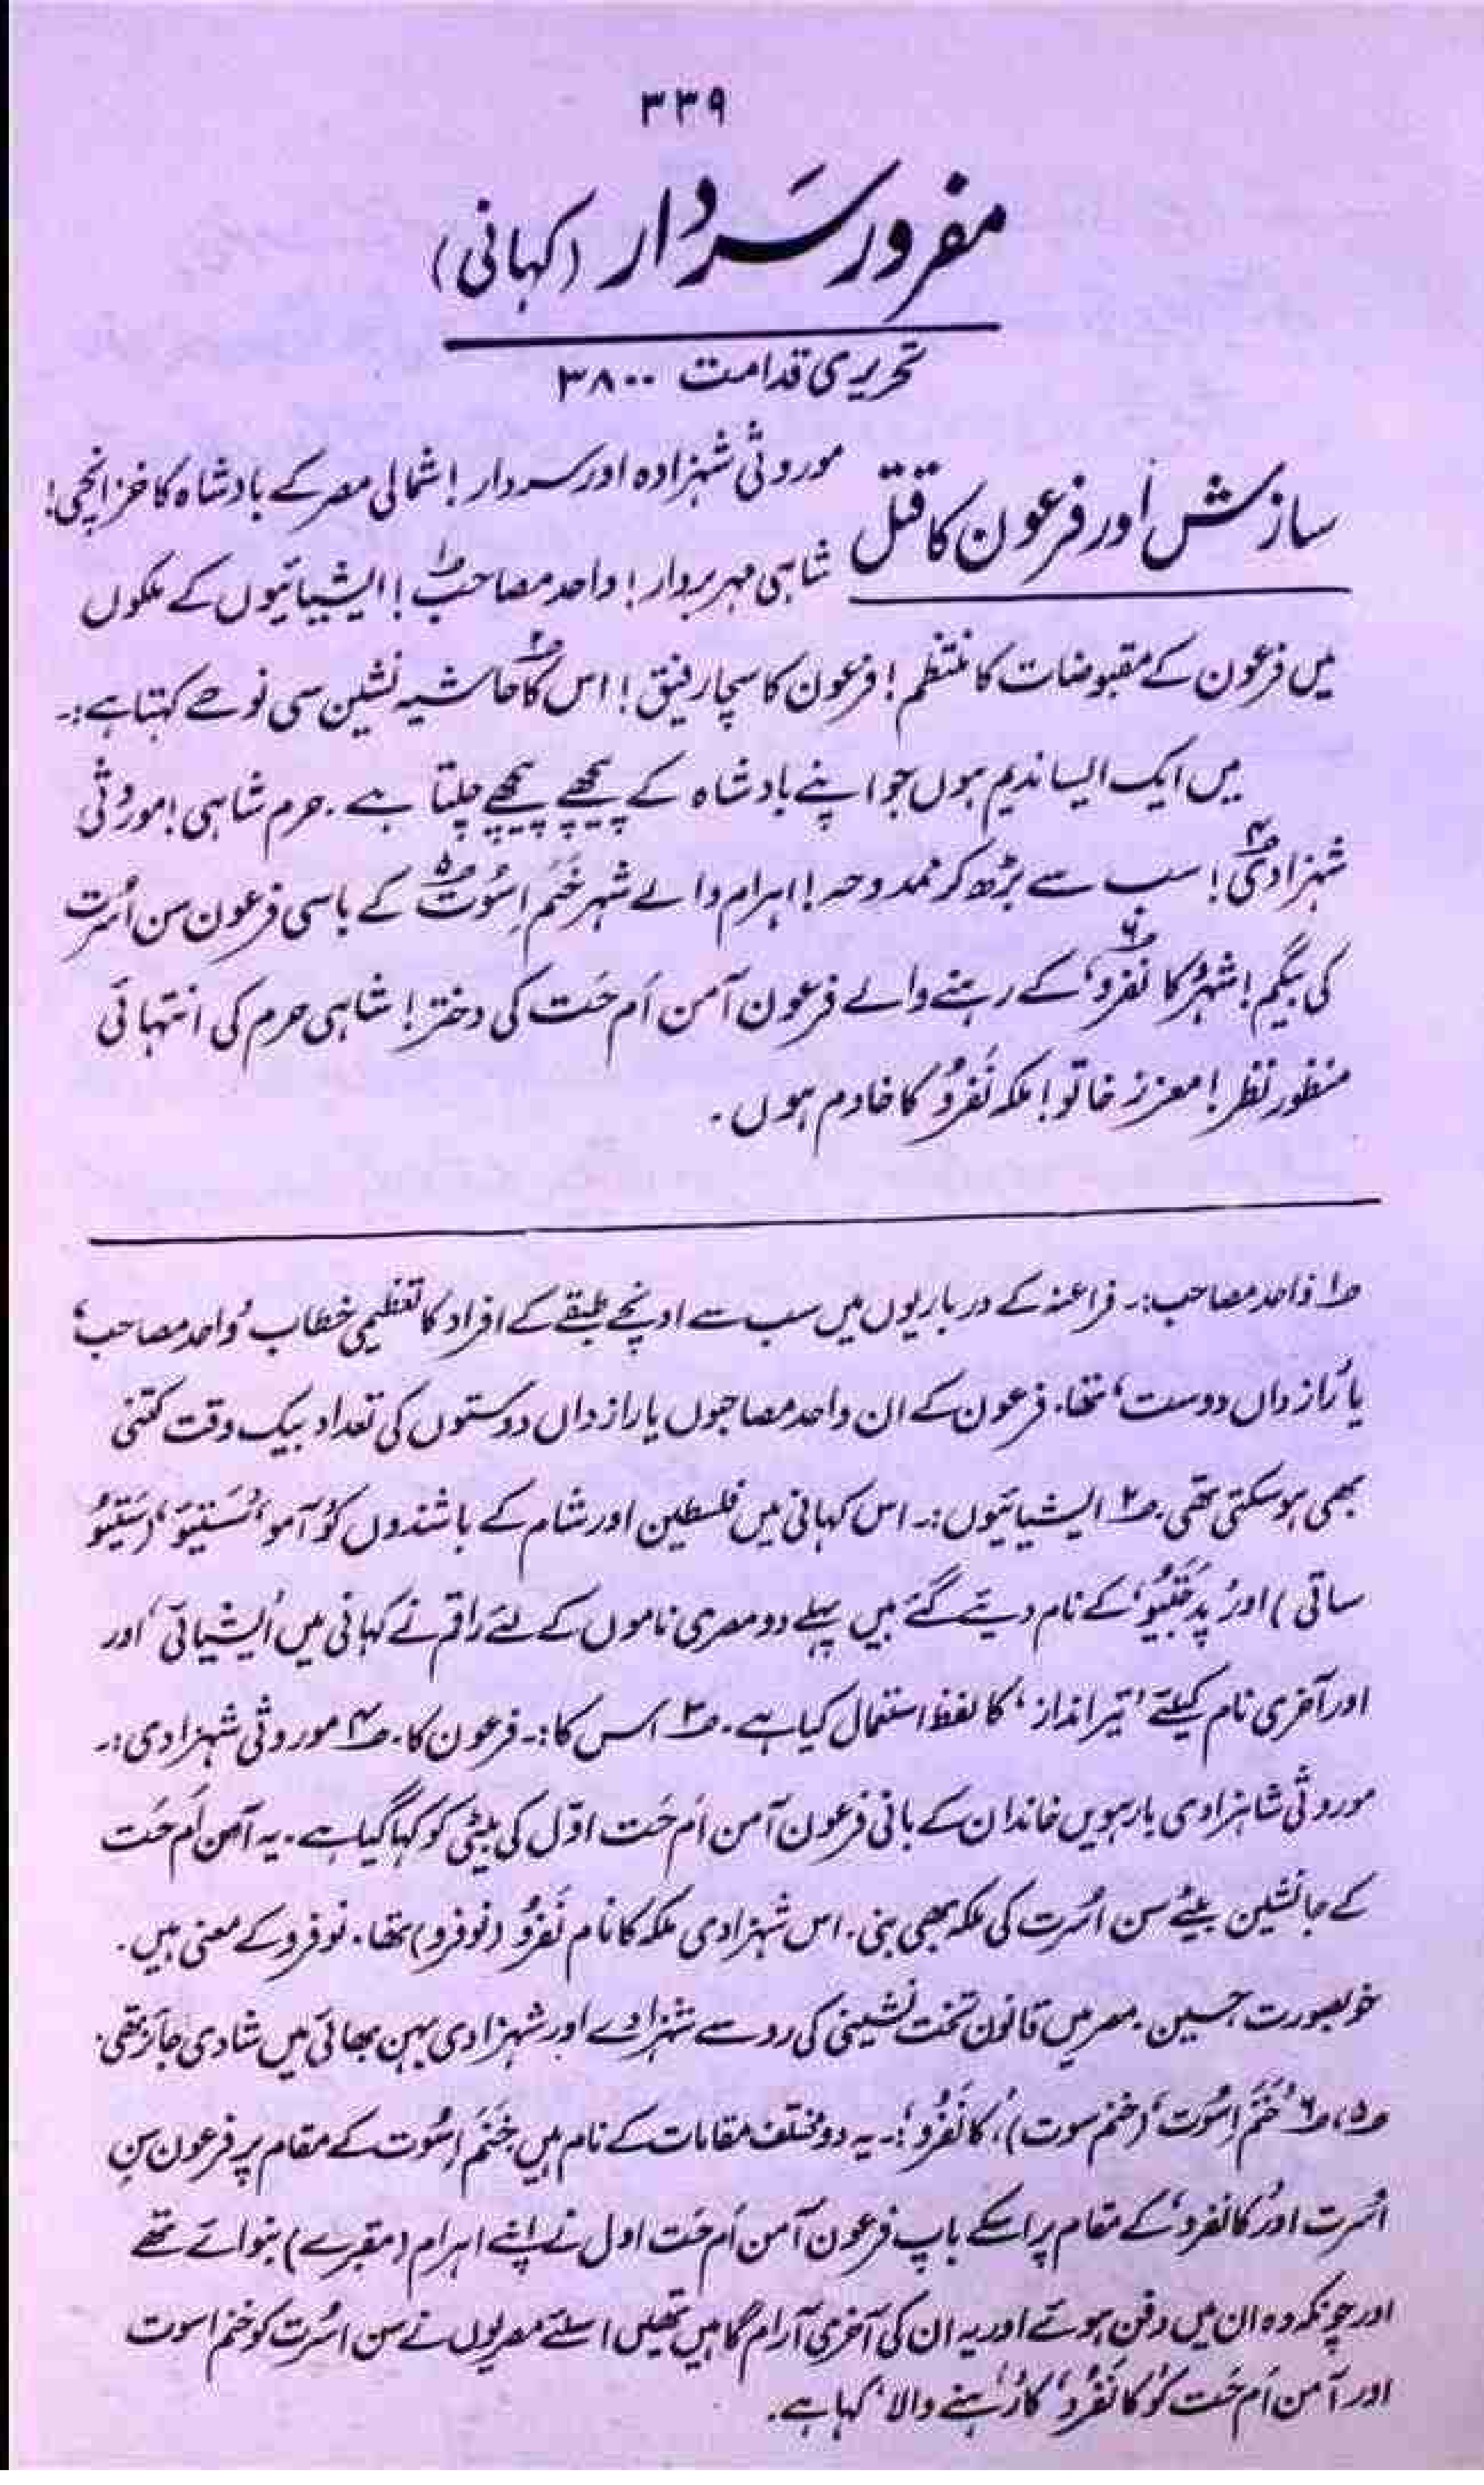 ۳۳۹
مفرور سَردار (کہانی)
تحریری قدامت ۳۸۰۰
سازش اور فرعون کا قتل
موروثی شہزادہ اور سردار! شمالی مصر کے بادشاہ کا خزانچی!
شاہی مہر بردار! واحد مصاحب۱! ایشیائیوں کے ملکوں
میں فرعون کے مقبوضات کا منتظم! فرعون کا سچا رفیق! اس کا۳ حاشیہ نشین سی نوحے کہتا ہے:۔
میں ایک ایسا ندیم ہوں جو اپنے بادشاہ کے پیچھے پیچھے چلتا ہے۔ حرم شاہی! موروثی
شہزادی۴! سب سے بڑھ کر ممدوحہ! اہرام والے شہر خَنَم اِسُوت۵ کے باسی فرعون سن اُسرت
کی بیگم! شہر ’کا نَفرو‘۶ کے رہنے والے فرعون آمن اُم حَت کی دختر! شاہی حرم کی انتہائی
منظور نظر! معزز خاتو! ملکہ نَفرُو کا خادم ہوں۔
۱ واحد مصاحب:۔ فراعنہ کے درباریوں میں سب سے اونچے طبقے کے افراد کا تعظیمی خطاب ’واحد مصاحب‘
یا ’رازداں دوست‘ تھا۔ فرعون کے ان واحد مصاحبوں یا رازداں دوستوں کی تعداد بیک وقت کتنی
بھی ہو سکتی تھی۔ ۲ ایشیائیوں:۔ اس کہانی میں فلسطین اور شام کے باشندوں کو ’آمو‘ ’سَتیُو‘ (سَتیُو
ساتی) اور ’پدخیتو‘ کے نام دیئے گئے ہیں پہلے دو مصری ناموں کے لئے راقم نے کہانی میں ’ایشیائی‘ اور
اور آخری نام کیلئے ’تیر انداز‘ کا لفظ استعمال کیا ہے۔ ۳ اس کا:۔ فرعون کا۔ ۴ موروثی شہزادی:۔
موروثی شاہزادی بارہویں خاندان کے بانی فرعون آمن اُم حَت اوّل کی بیٹی کو کہا گیا ہے۔ یہ آمن اُم حَت
کے جانشین بیٹے سن اُسرت کی ملکہ بھی بنی۔ اس شہزادی ملکہ کا نام نَفرُو (نوفرو) تھا۔ نوفرو کے معنی ہیں۔
خوبصورت حسین۔ مصر میں قانون تخت نشینی کی رو سے شہزادے اور شہزادی بہن بھائی میں شادی جائز تھی۔
۵، ۶ ’خَنَم اِسُوت‘ (خنم سوت)، ’کا نَفرُو‘:۔ یہ دو مختلف مقامات کے نام ہیں خَنَم اِسُوت کے مقام پر فرعون سِن
اُسرت اور ’کا نفرو‘ کے مقام پر اسکے باپ فرعون آمن اُم حَت اول نے اپنے اہرام (مقبرے) بنوائے تھے
اور چونکہ وہ ان میں دفن ہوئے اور یہ ان کی آخری آرام گاہیں تھیں اسلئے مصریوں نے سن اُسرت کو خنم اسوت
اور آمن اُم حَت کو ’کا نَفرُو‘ کا ’رہنے والا‘ کہا ہے۔